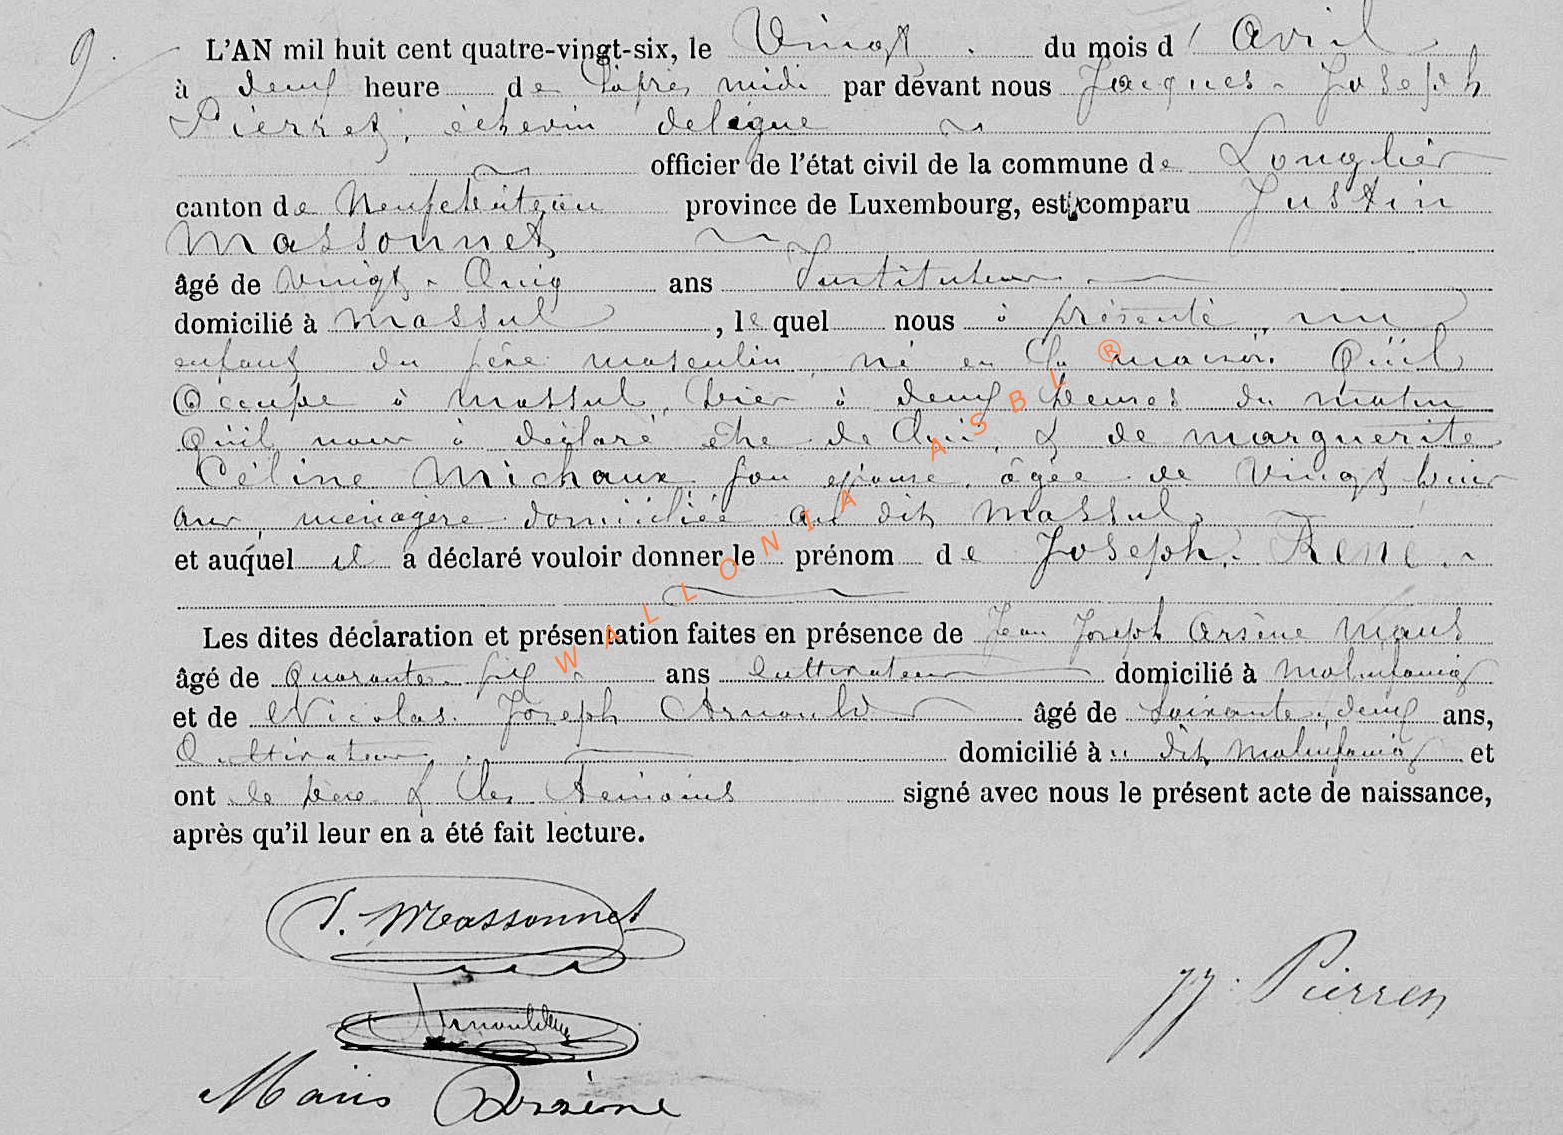 9.
L'AN mil huit cent quatre-vingt-six, le Vingt du mois d' Avril
à deux heure de l'après midi par devant nous Jacques-Joseph
Pierret, échevin délégué
officier de l'état civil de la commune de Longlier
canton de Neufchâteau province de Luxembourg, est comparu Justin
Massonnet
âgé de Vingt-Cinq ans Instituteur
domicilié à Massul, le quel nous à présenté, un
enfant du sexe masculin né en la maison Qu'il
Occupe à Massul, hier à deux heures du matin
Qu'il nous à déclaré être de lui & de Marguerite
Céline Michaux son épouse, âgée de Vingt huit
ans, ménagère domiciliée au dit Massul
et auquel il a déclaré vouloir donner le prénom de Joseph-René
Les dites déclaration et présentation faites en présence de Jean Joseph Arsène Maus
âgé de Quarante six ans Cultivateur domicilié à Molinfaing
et de Nicolas Joseph Arnould âgé de Soixante-deux ans,
Cultivateur domicilié à u dit Molinfaing et
ont le père & les témoins signé avec nous le présent acte de naissance,
après qu'il leur en a été fait lecture.
J. Massonnet
Arnould
JJ. Pierret
Maus Arsène
WALLONIA ASBL ®